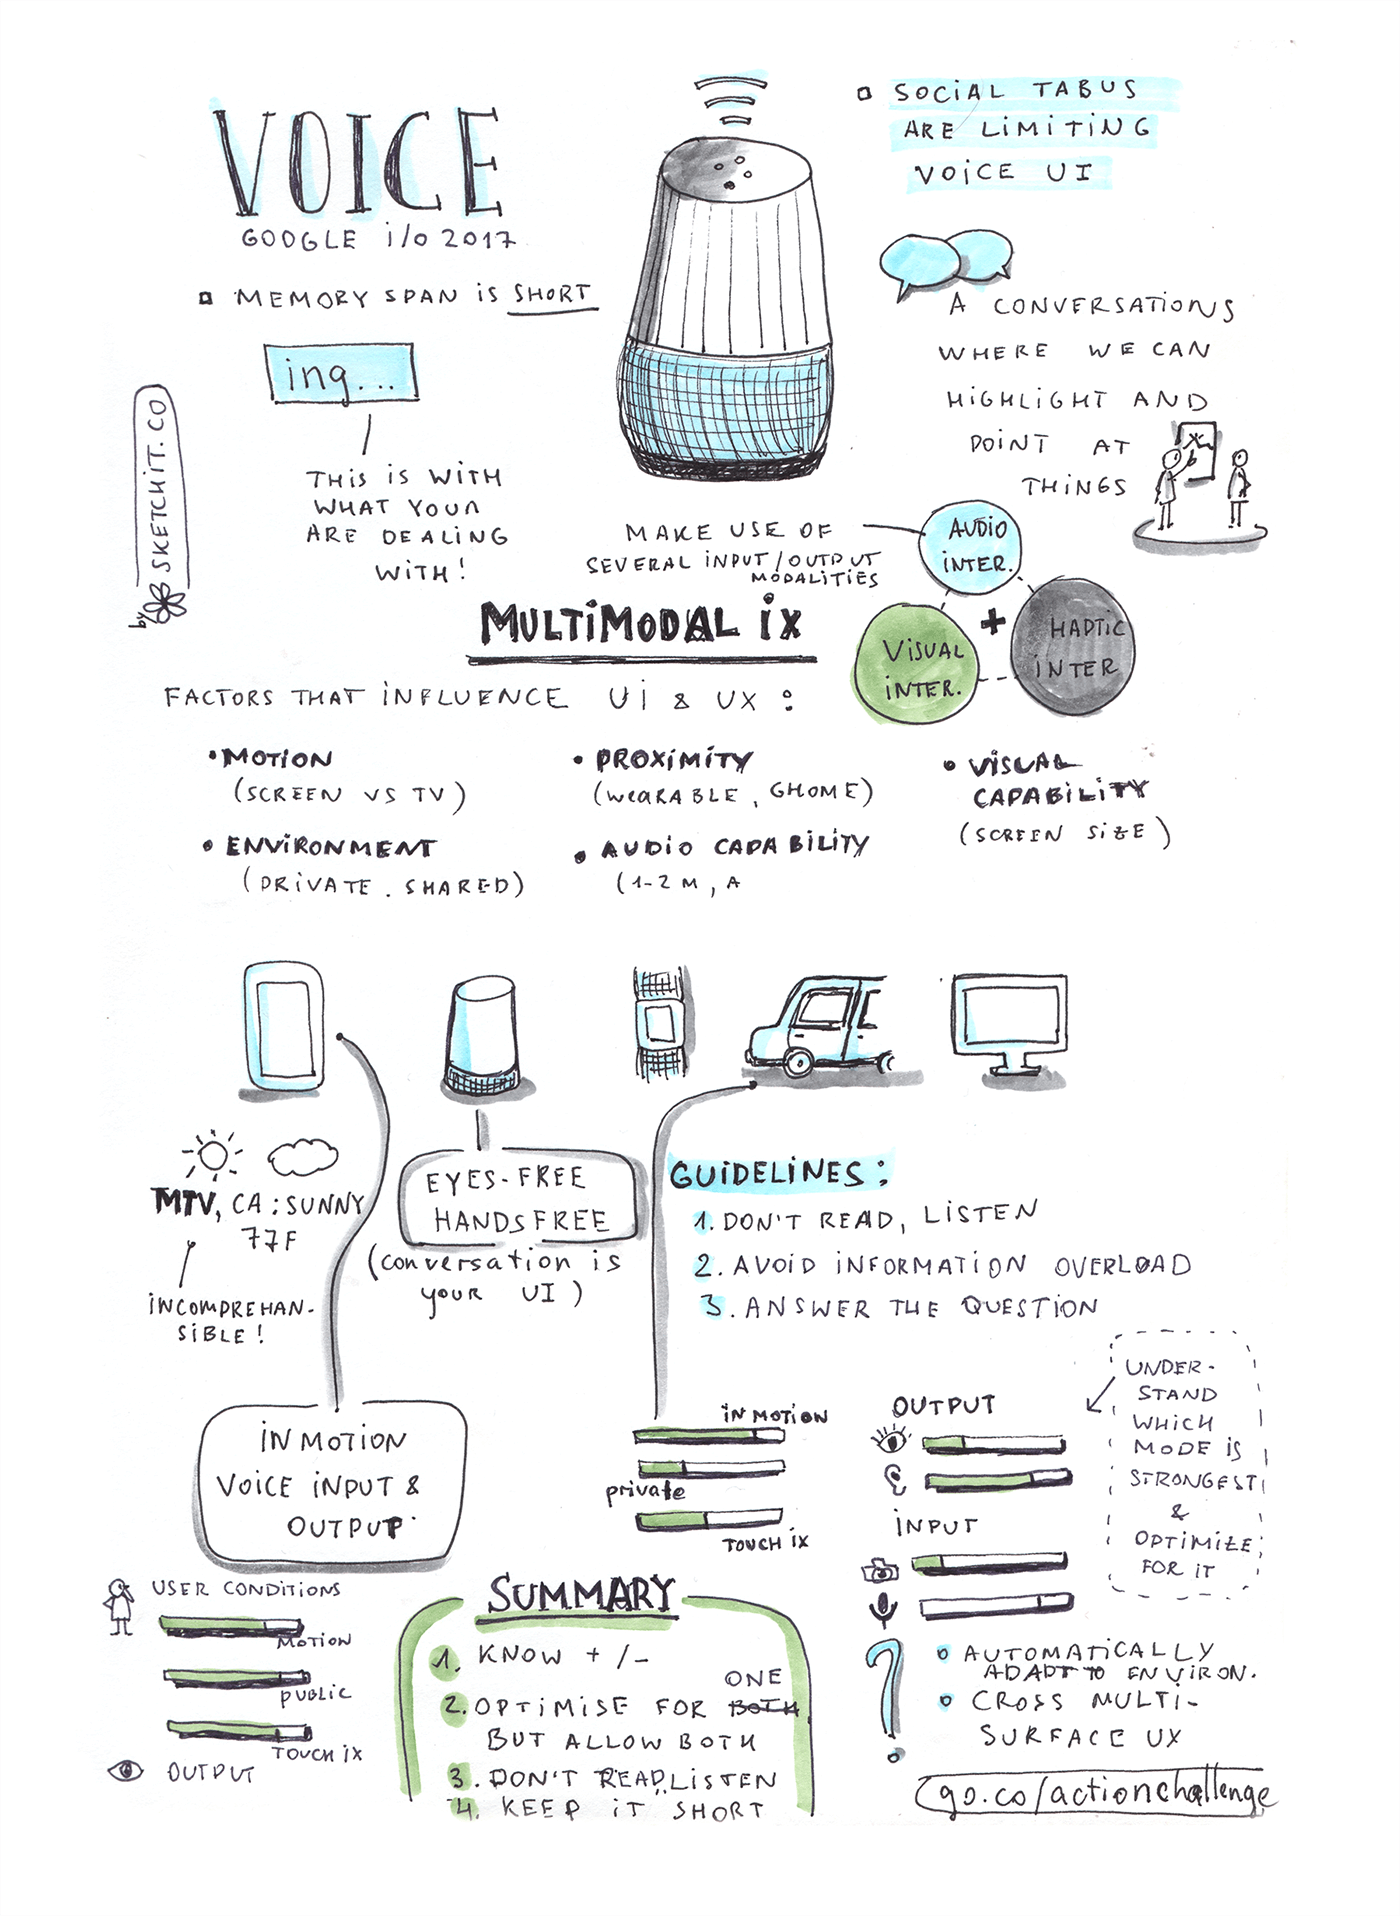 VOICE
GOOGLE i/o 2017
MEMORY SPAN iS SHORT
ing...
THIS iS WITH
WHAT YOUR
ARE DEALING
WITH!
by SKETCHIT.CO
SOCiAL TABUS
ARE LIMITING
VOICE UI
A CONVERSATIONS
WHERE WE CAN
HIGHLIGHT AND
POINT AT
THINGS
MAKE USE OF
SEVERAL INPUT/OUTPUT
MODALITIES
AUDIO
INTER.
+
VISUAL
INTER.
HAPTIC
INTER
MULTIMODAL iX
FACTORS THAT INFLUENCE Ui & UX :
• MOTION
(SCREEN VS TV)
• PROXIMITY
(WEARABLE, GHOME)
• VISUAL
CAPABILITY
(SCREEN SIZE)
• ENVIRONMENT
(PRIVATE. SHARED)
• AUDIO CAPABILITY
(1-2 M, A
MTV, CA : SUNNY
77F
INCOMPREHAN-
SIBLE!
EYES-FREE
HANDSFREE
(conversation is
your UI)
GUIDELINES:
1. DON'T READ, LISTEN
2. AVOID INFORMATION OVERLOAD
3. ANSWER THE QUESTION
IN MOTION
VOICE INPUT &
OUTPUT
IN MOTION
private
TOUCH iX
OUTPUT
INPUT
UNDER-
STAND
WHICH
MODE iS
STRONGEST
&
OPTIMIZE
FOR IT
USER CONDITIONS
MOTION
PUBLIC
TOUCH iX
OUTPUT
SUMMARY
1. KNOW + /-
ONE
2. OPTIMISE FOR BOTH
BUT ALLOW BOTH
3. DON'T READ, LISTEN
4. KEEP iT SHORT
?
AUTOMATICALLY
ADAPT TO ENVIRON.
CROSS MULTI-
SURFACE UX
go.co/actionchallenge